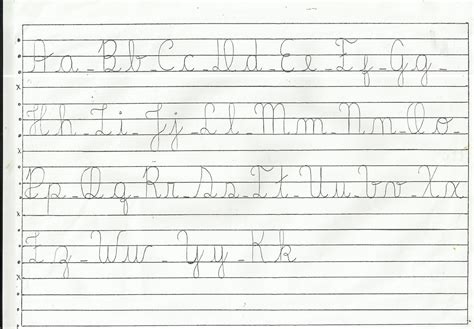 Aa - Bb - Cc - Dd - Ee - Ff - Gg -
Hh - Ii - Jj - Ll - Mm - Nn - Oo -
Pp - Qq - Rr - Ss - Tt - Uu - Vv - Xx
Zz - Ww - Yy - Kk